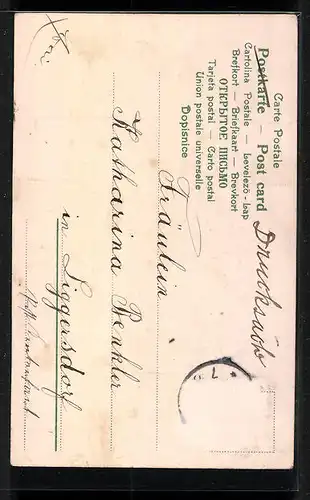 Carte Postale
Postkarte — Post card
Cartolina Postale — Levelező-lap
Brefkort — Briefkaart — Brevkort
ОТКРЫТОЕ ПИСЬМО
Tarjeta postal — Carto postal
Union postale universelle
Dopisnice
Drucksache
Fräulein
Katharina Renkler
in Liggersdorf